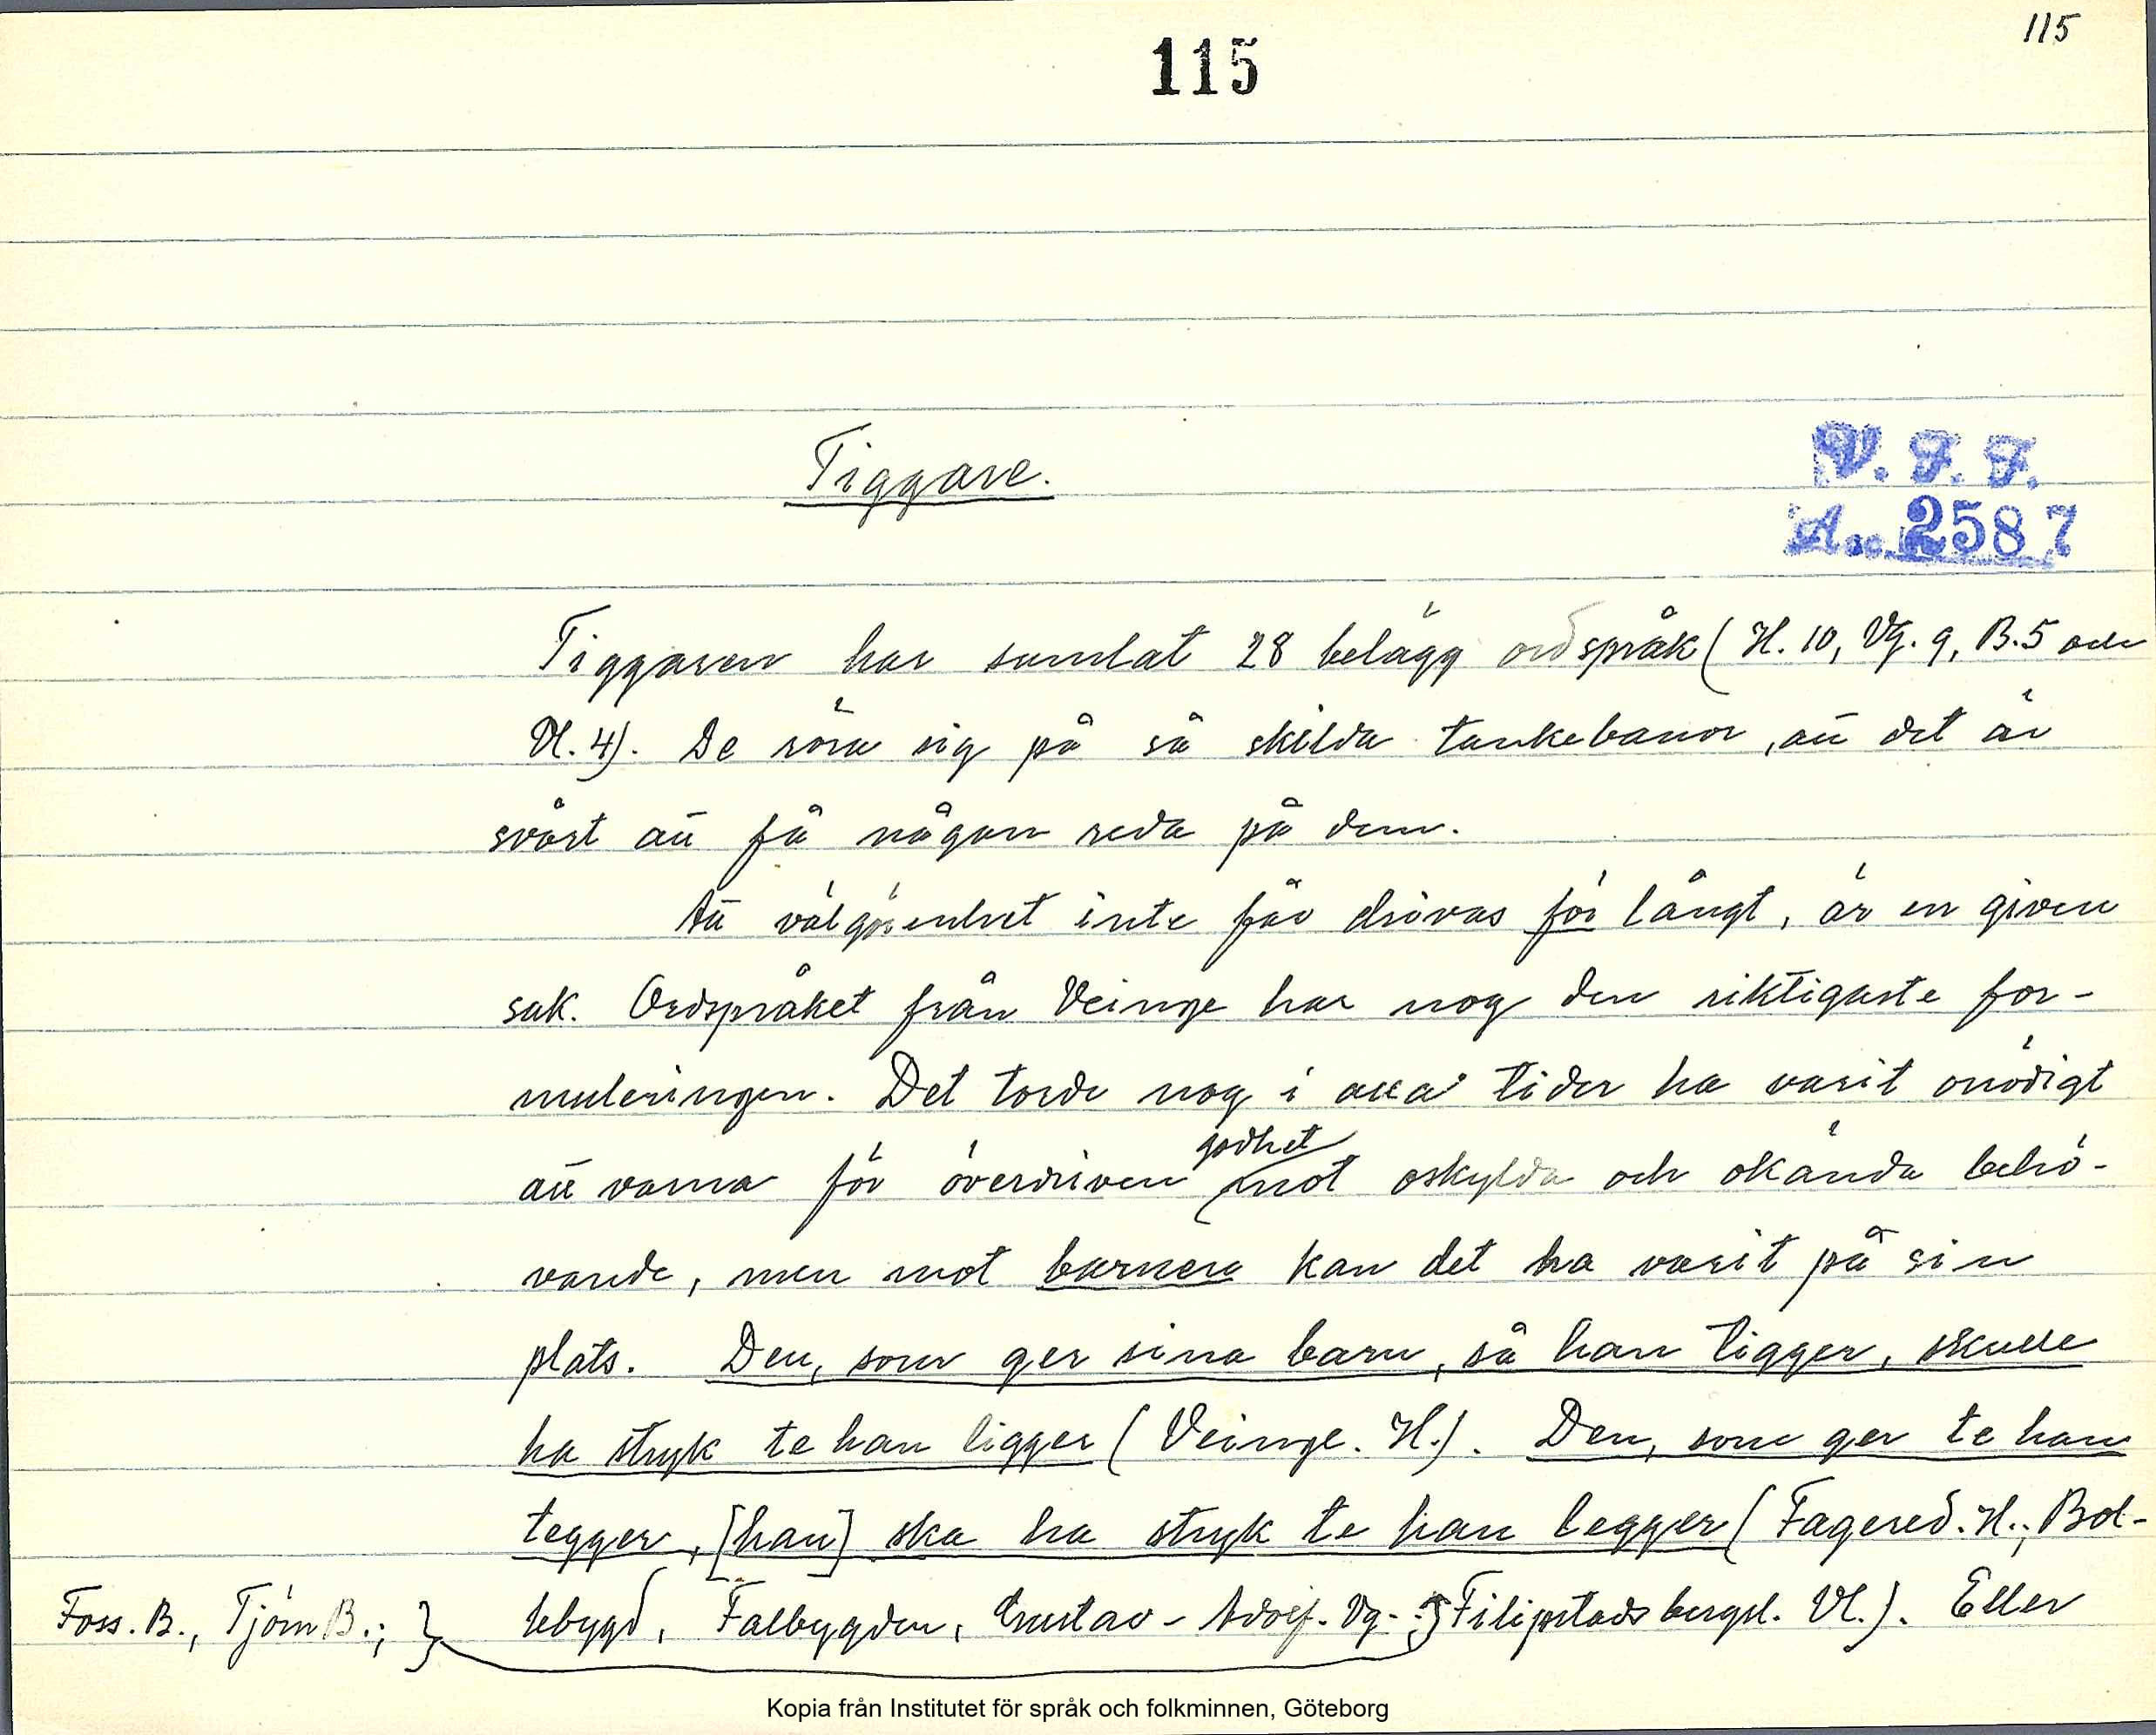 115
115
Tiggare.
V. F. F.
Acc. 2587
Tiggaren har samlat 28 belägg ordspråk (H. 10, Vg. 9, B. 5 och
Vl. 4). De röra sig på så skilda tankebanor, att det är
svårt att få någon reda på dem.
Att välgörenhet inte får drivas för långt, är en given
sak. Ordspråket från Veinge har nog den riktigaste for-
muleringen. Det torde nog i alla tider ha varit onödigt
godhet
att varna för överdriven mot oskylda och okända behö-
vande, men mot barnen kan det ha varit på sin
plats. Den, som ger sina barn, så han tigger, skulle
ha stryk te han ligger (Veinge. H.). Den, som ger te han
tegger, [han] ska ha stryk te han legger (Fagered. H.; Bol-
Foss. B., Tjörn B.; } lebygd, Falbygden, Gustav-Adolf. Vg.; Filipstads bergsl. Vl.). Eller
Kopia från Institutet för språk och folkminnen, Göteborg